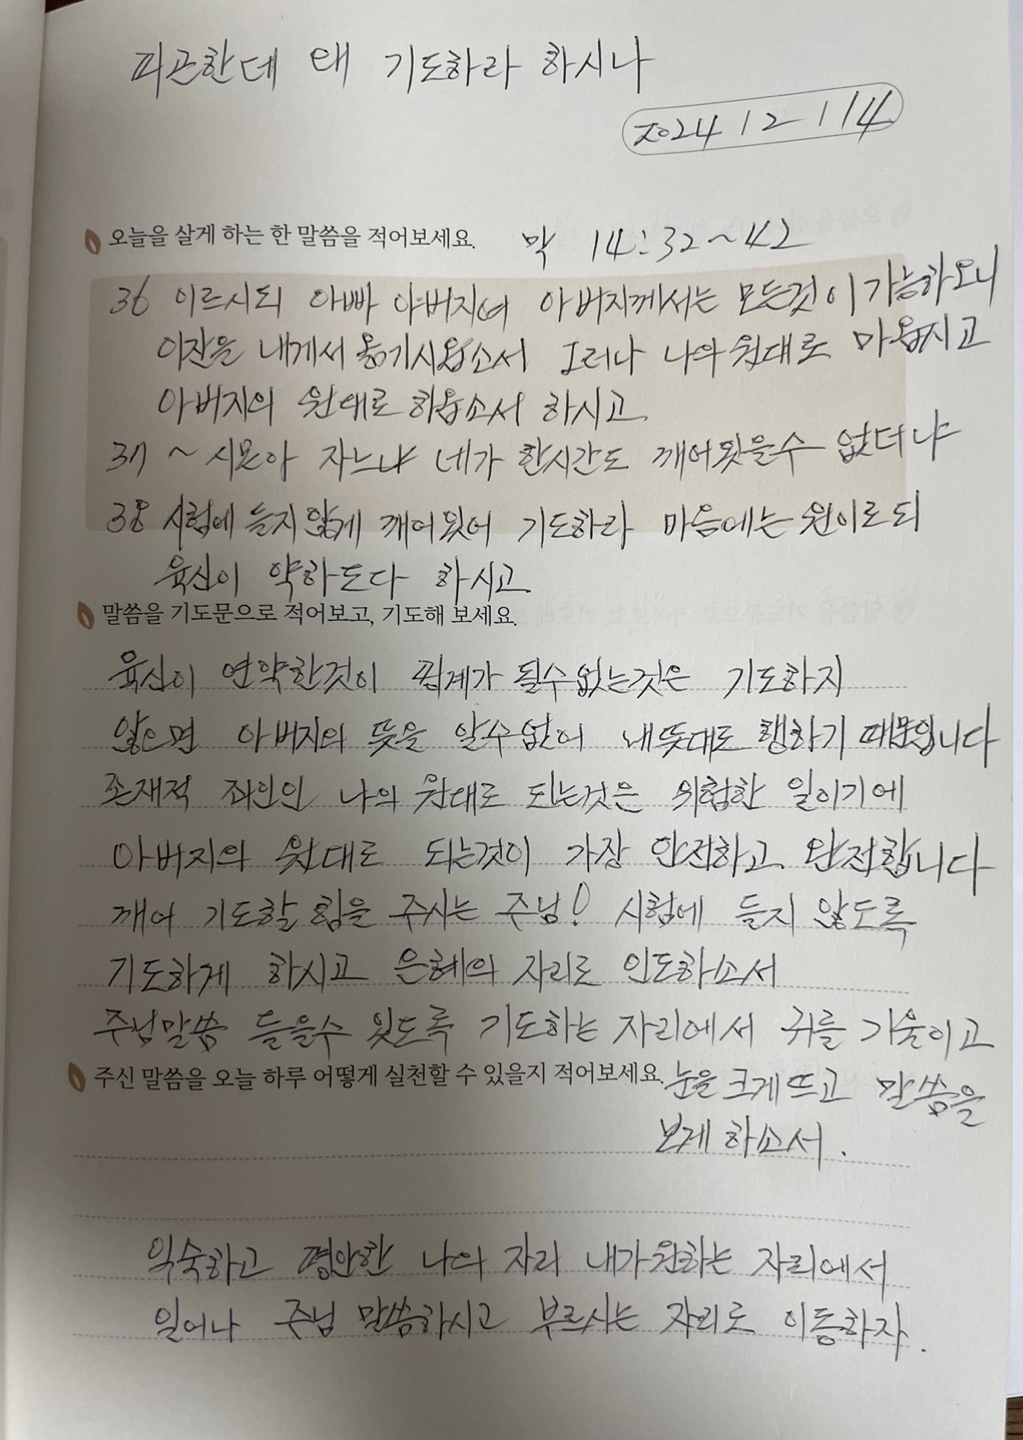 피곤한데 왜 기도하라 하시나
2024 12 114
오늘을 살게 하는 한 말씀을 적어보세요. 막 14:32~42
36 이르시되 아빠 아버지여 아버지께서는 모든것이 가능하오니
이잔을 내게서 옮기시옵소서 그러나 나의 원대로 마옵시고
아버지의 원대로 하옵소서 하시고
37 ~ 시몬아 자느냐 네가 한시간도 깨어있을수 없더냐
38 시험에 들지 않게 깨어있어 기도하라 마음에는 원이로되
육신이 약하도다 하시고
말씀을 기도문으로 적어보고, 기도해 보세요.
육신이 연약한것이 핑계가 될수없는것은 기도하지
않으면 아버지의 뜻을 알수없어 내뜻대로 행하기 때문입니다
존재적 죄인인 나의 원대로 되는것은 위험한 일이기에
아버지의 원대로 되는것이 가장 안전하고 완전합니다
깨어 기도할 힘을 주시는 주님! 시험에 들지 않도록
기도하게 하시고 은혜의 자리로 인도하소서
주님말씀 들을수 있도록 기도하는 자리에서 귀를 기울이고
주신 말씀을 오늘 하루 어떻게 실천할 수 있을지 적어보세요. 눈을 크게 뜨고 말씀을
보게 하소서.
익숙하고 평안한 나의 자리 내가원하는 자리에서
일어나 주님 말씀하시고 부르시는 자리로 이동하자.